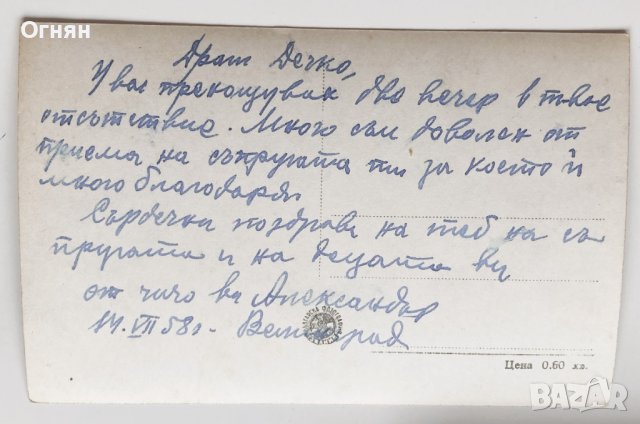 Огнян
Драги Дечко,
У вас пренощувах две вечер в твое
отсътствие. Много съм доволен от
приема на съпругата ти за което и
много благодаря.
Сърдечни поздрави на теб на съ
пругата и на децата ви
от чичо ви Александър
14. VII 58 г. Велинград
Цена 0.60 лв.
BAZAR